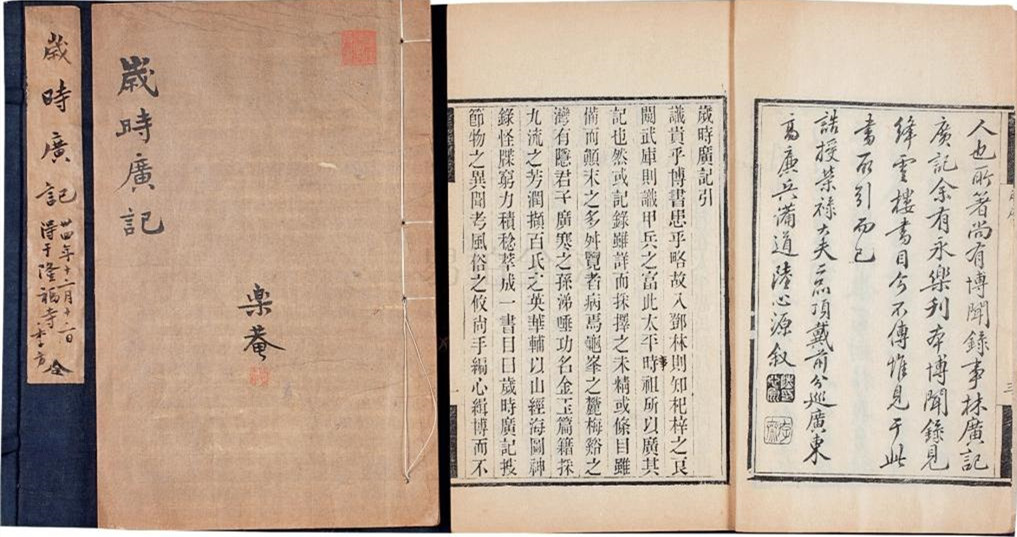 歲時廣記
卅四年十二月十二日
得于隆福寺
全
歲時廣記
樂菴
人也所著尚有博聞錄事林廣記
廣記余有永樂刊本博聞錄見
絳雲樓書目今不傳惟見于此
書所引而已
誥授榮祿大夫二品頂戴前分巡廣東
高廉兵備道陸心源敘
歲時廣記引
識貴乎博書患乎略故入鄧林則知杞梓之良
閱武庫則識甲兵之富此太平時事祖所以廣其
記也然或記錄雖詳而採擇之未精或條目雖
備而顛末之多舛覽者病焉龜峯之麓梅谿之
灣有隱君子廣寒之孫涕唾功名金玉篇籍採
九流之芳潤擷百氏之英華輔以山經海圖神
錄怪牒窮力積稔萃成一書目曰歲時廣記披
節物之異聞考風俗之攸尚手編心緝博而不